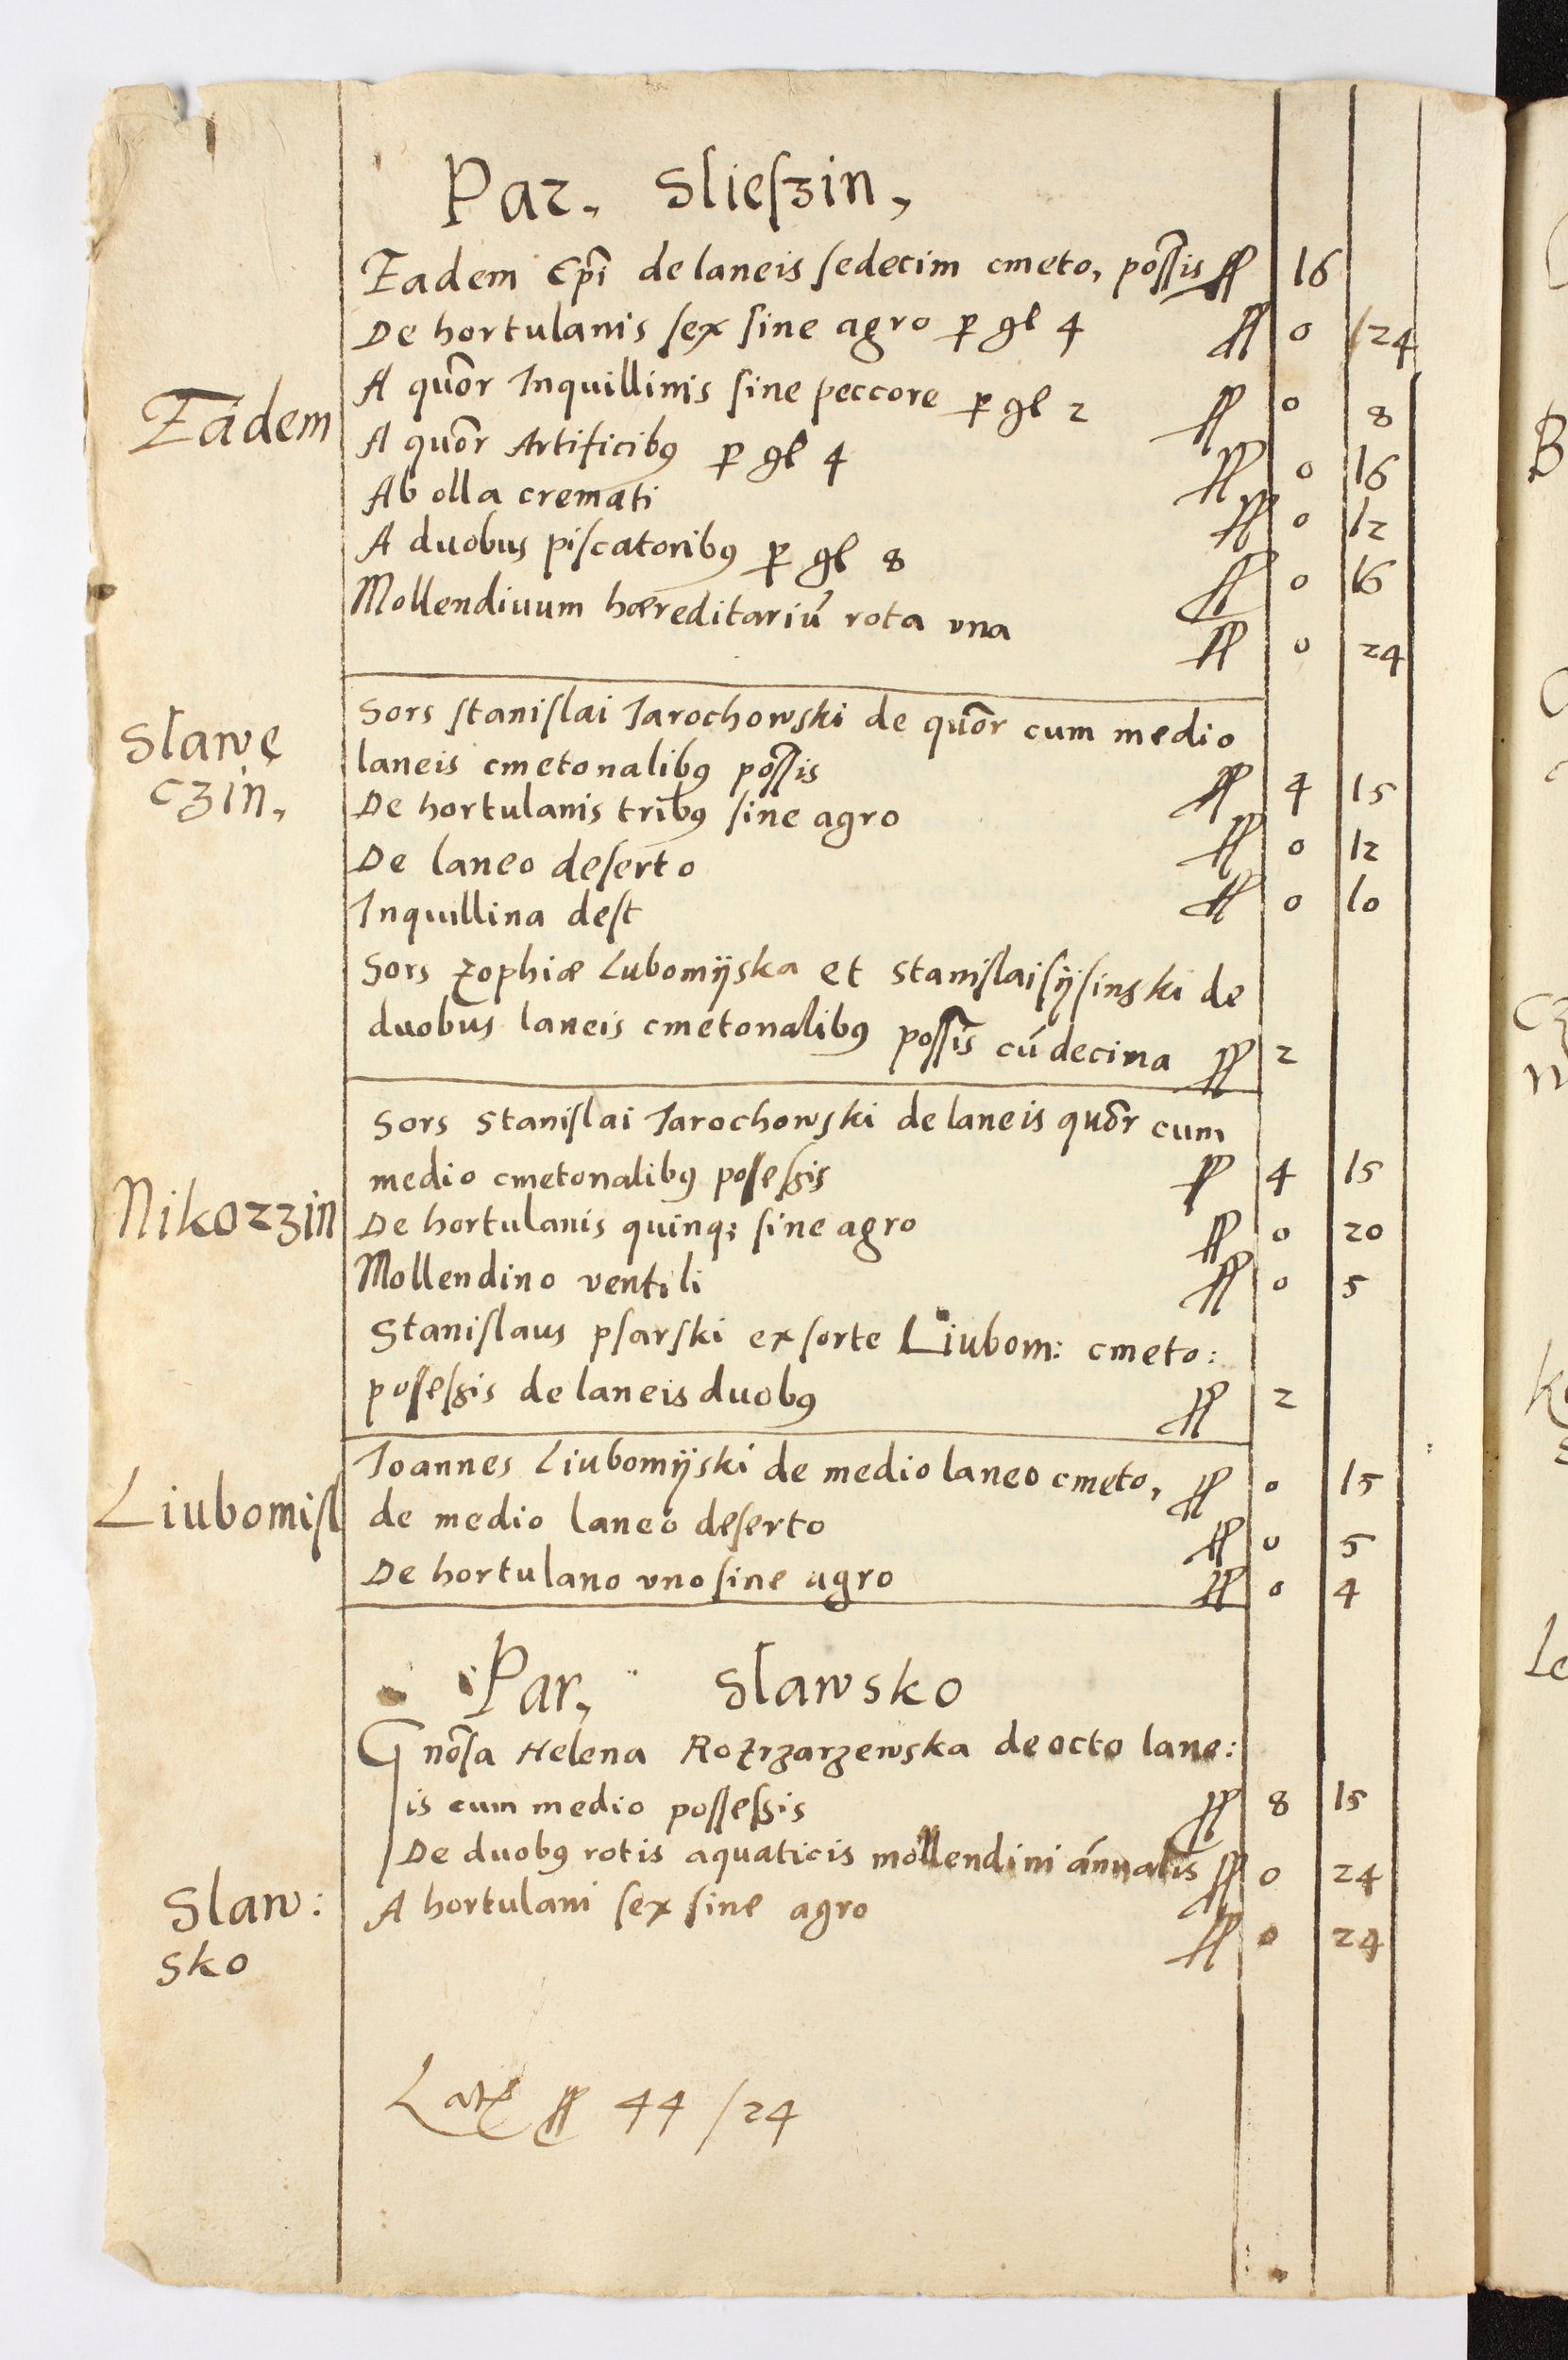 Par. Slieſzin,
Eadem Ep̃i de laneis ſedecim cmeto, poſſis ff 16
De hortulanis ſex ſine agro p gl 4 ff 0 /24
Eadem
A quõr Inquillinis ſine peccore p gl 2 ff 0 8
A quõr Artificibꝰ p gl 4 ff 0 16
Ab olla cremati ff 0 12
A duobus piſcatoribꝰ p gl 8 ff 0 16
Mollendiuum hæreditariú rota vna ff 0 24
Slawę
czin,
Sors ſtaniſlai Jarochowski de quõr cum medio
laneis cmetonalibꝰ poſſis ff 4 15
De hortulanis tribꝰ ſine agro ff 0 12
De laneo deſerto ff 0 10
Inquillina deſt
Sors Zophiæ Lubomijska et Staniſlai ſijſinski de
duobus laneis cmetonalibꝰ poſſis cú decima ff 2
Nikorzin
Sors Staniſlai Jarochowſki de laneis quõr cum
medio cmetonalibꝰ poſeſsis ff 4 15
De hortulanis quinq; ſine agro ff 0 20
Mollendino ventili ff 0 5
Staniſlaus pſarſki ex ſorte Liubom: cmeto:
poſeſsis de laneis duobꝰ ff 2
Liubomiſl
Joannes Liubomijski de medio laneo cmeto, ff 0 15
de medio laneo deſerto ff 0 5
De hortulano vno ſine agro ff 0 4
Par, Slawsko
Gnõſa Helena Rozrzarzewska de octo lane:
is cum medio poſſeſsis ff 8 15
De duobꝰ rotis aquaticis mollendini ánnualis ff 0 24
Slaw:
sko
A hortulani ſex ſine agro ff 0 24
ff 44 /24